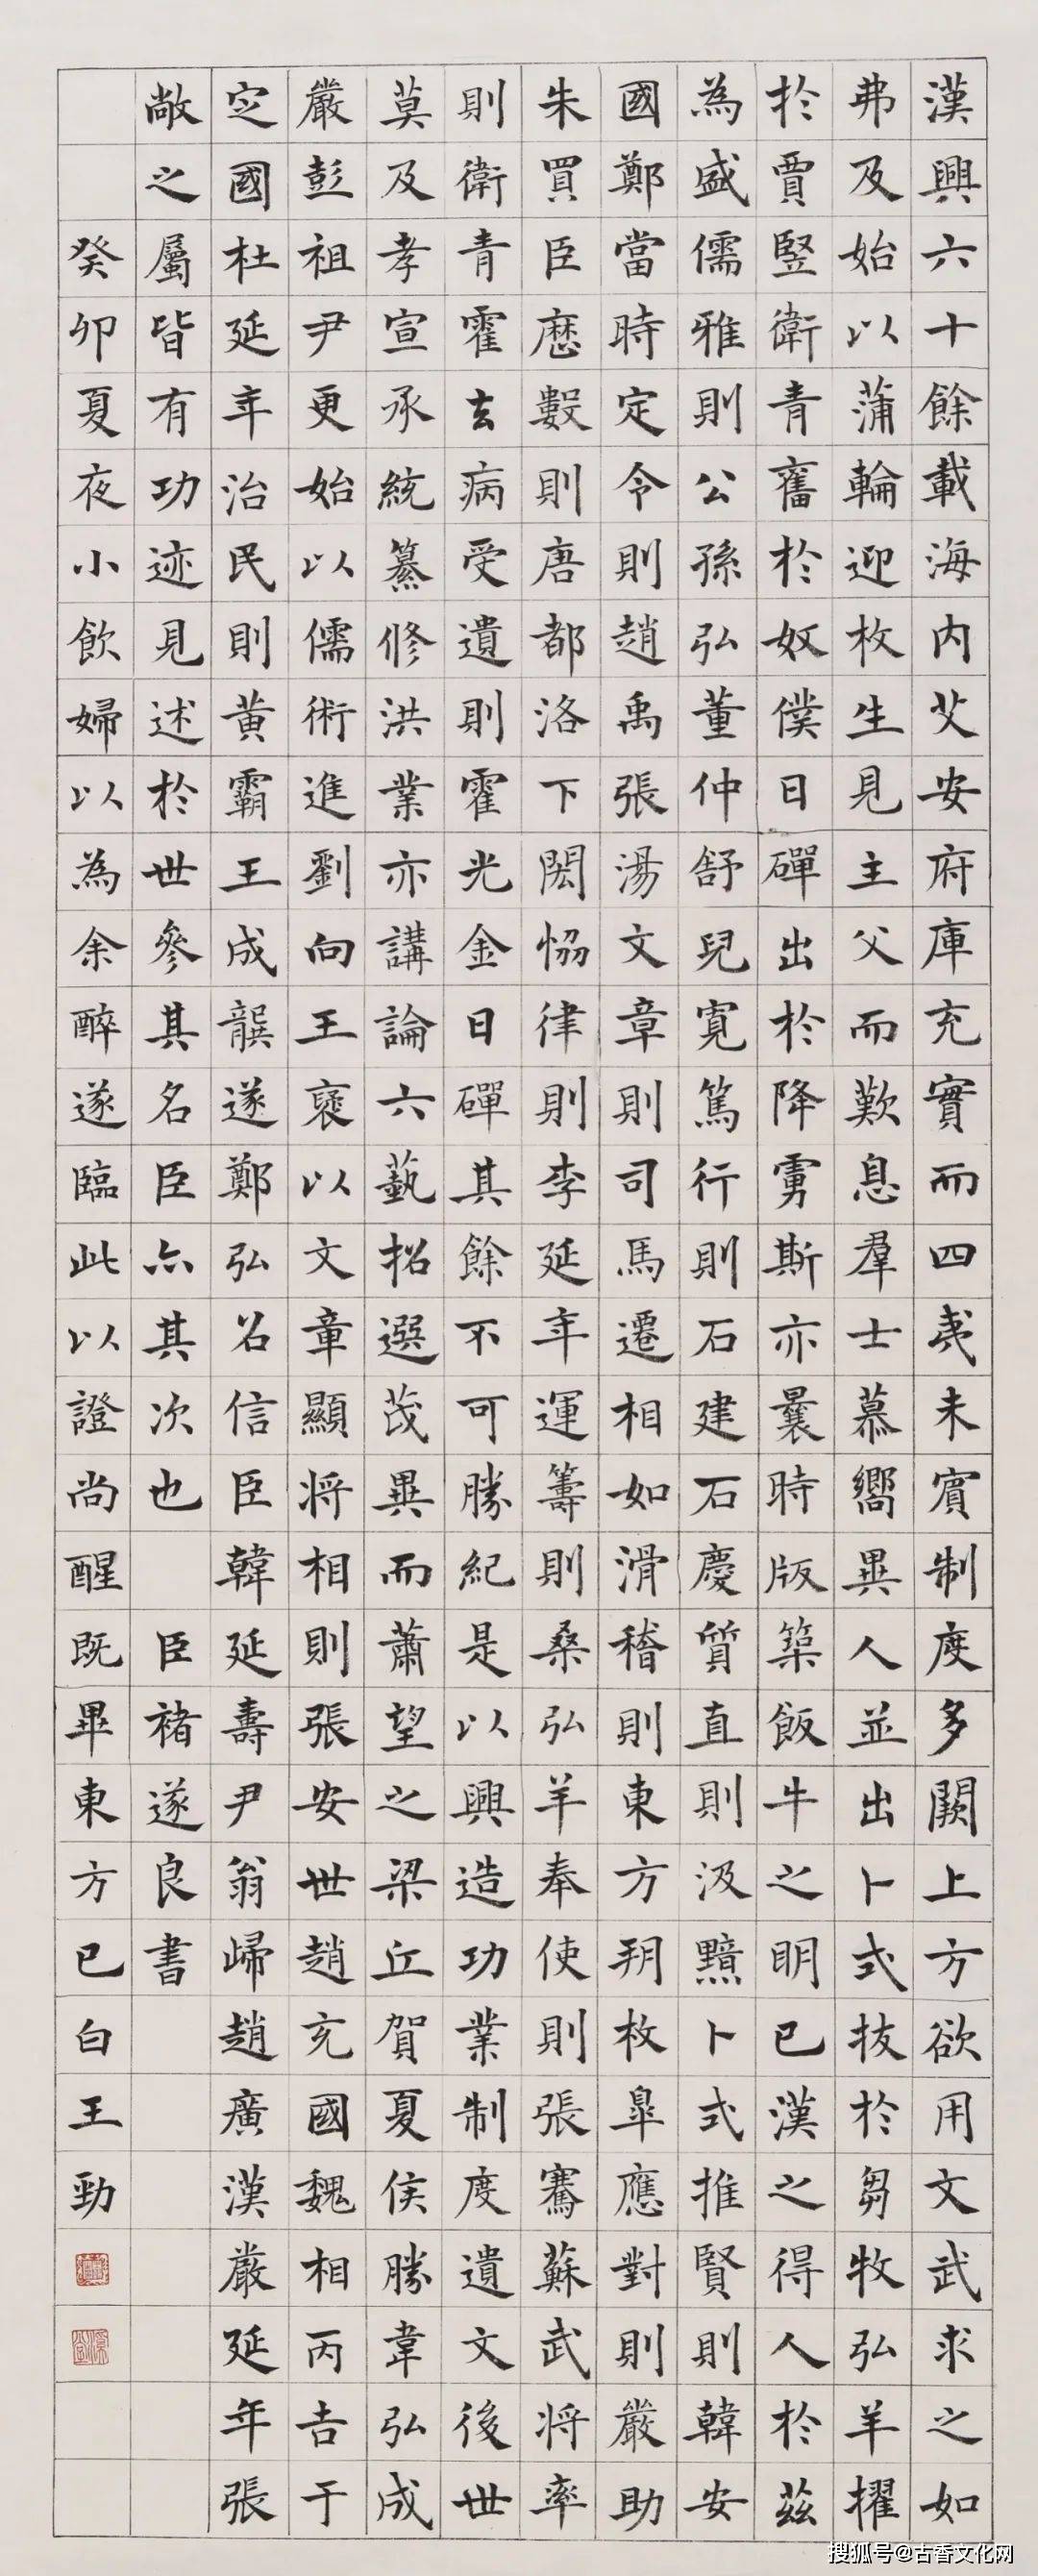 漢興六十餘載海内艾安府庫充實而四夷未賓制度多闕上方欲用文武求之如
弗及始以蒲輪迎枚生見主父而歎息羣士慕嚮異人並出卜式拔於芻牧弘羊擢
於賈豎衛青奮於奴僕日磾出於降虜斯亦曩時版築飯牛之明已漢之得人於茲
為盛儒雅則公孫弘董仲舒兒寬篤行則石建石慶質直則汲黯卜式推賢則韓安
國鄭當時定令則趙禹張湯文章則司馬遷相如滑稽則東方朔枚皋應對則嚴助
朱買臣歷數則唐都洛下閎恊律則李延年運籌則桑弘羊奉使則張騫蘇武將率
則衛青霍去病受遺則霍光金日磾其餘不可勝紀是以興造功業制度遺文後世
莫及孝宣承統纂修洪業亦講論六藝招選茂異而蕭望之梁丘賀夏侯勝韋弘成
嚴彭祖尹更始以儒術進劉向王襃以文章顯將相則張安世趙充國魏相丙吉于
定國杜延年治民則黃霸王成龔遂鄭弘召信臣韓延壽尹翁歸趙廣漢嚴延年張
敞之屬皆有功迹見述於世參其名臣亦其次也 臣褚遂良書
癸卯夏夜小飲婦以為余醉遂臨此以證尚醒既畢東方已白王勁
搜狐号@古香文化网